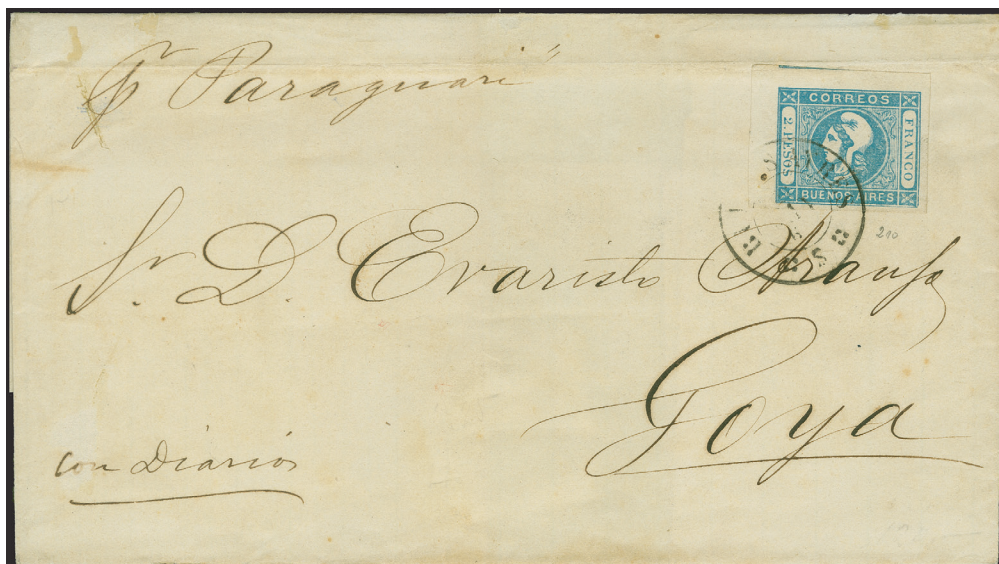 pr Paraguari"
CORREOS
2. PESOS
FRANCO
BUENOS AIRES
210
Sr. D. Evaristo Araujo
Goya
con Diarios